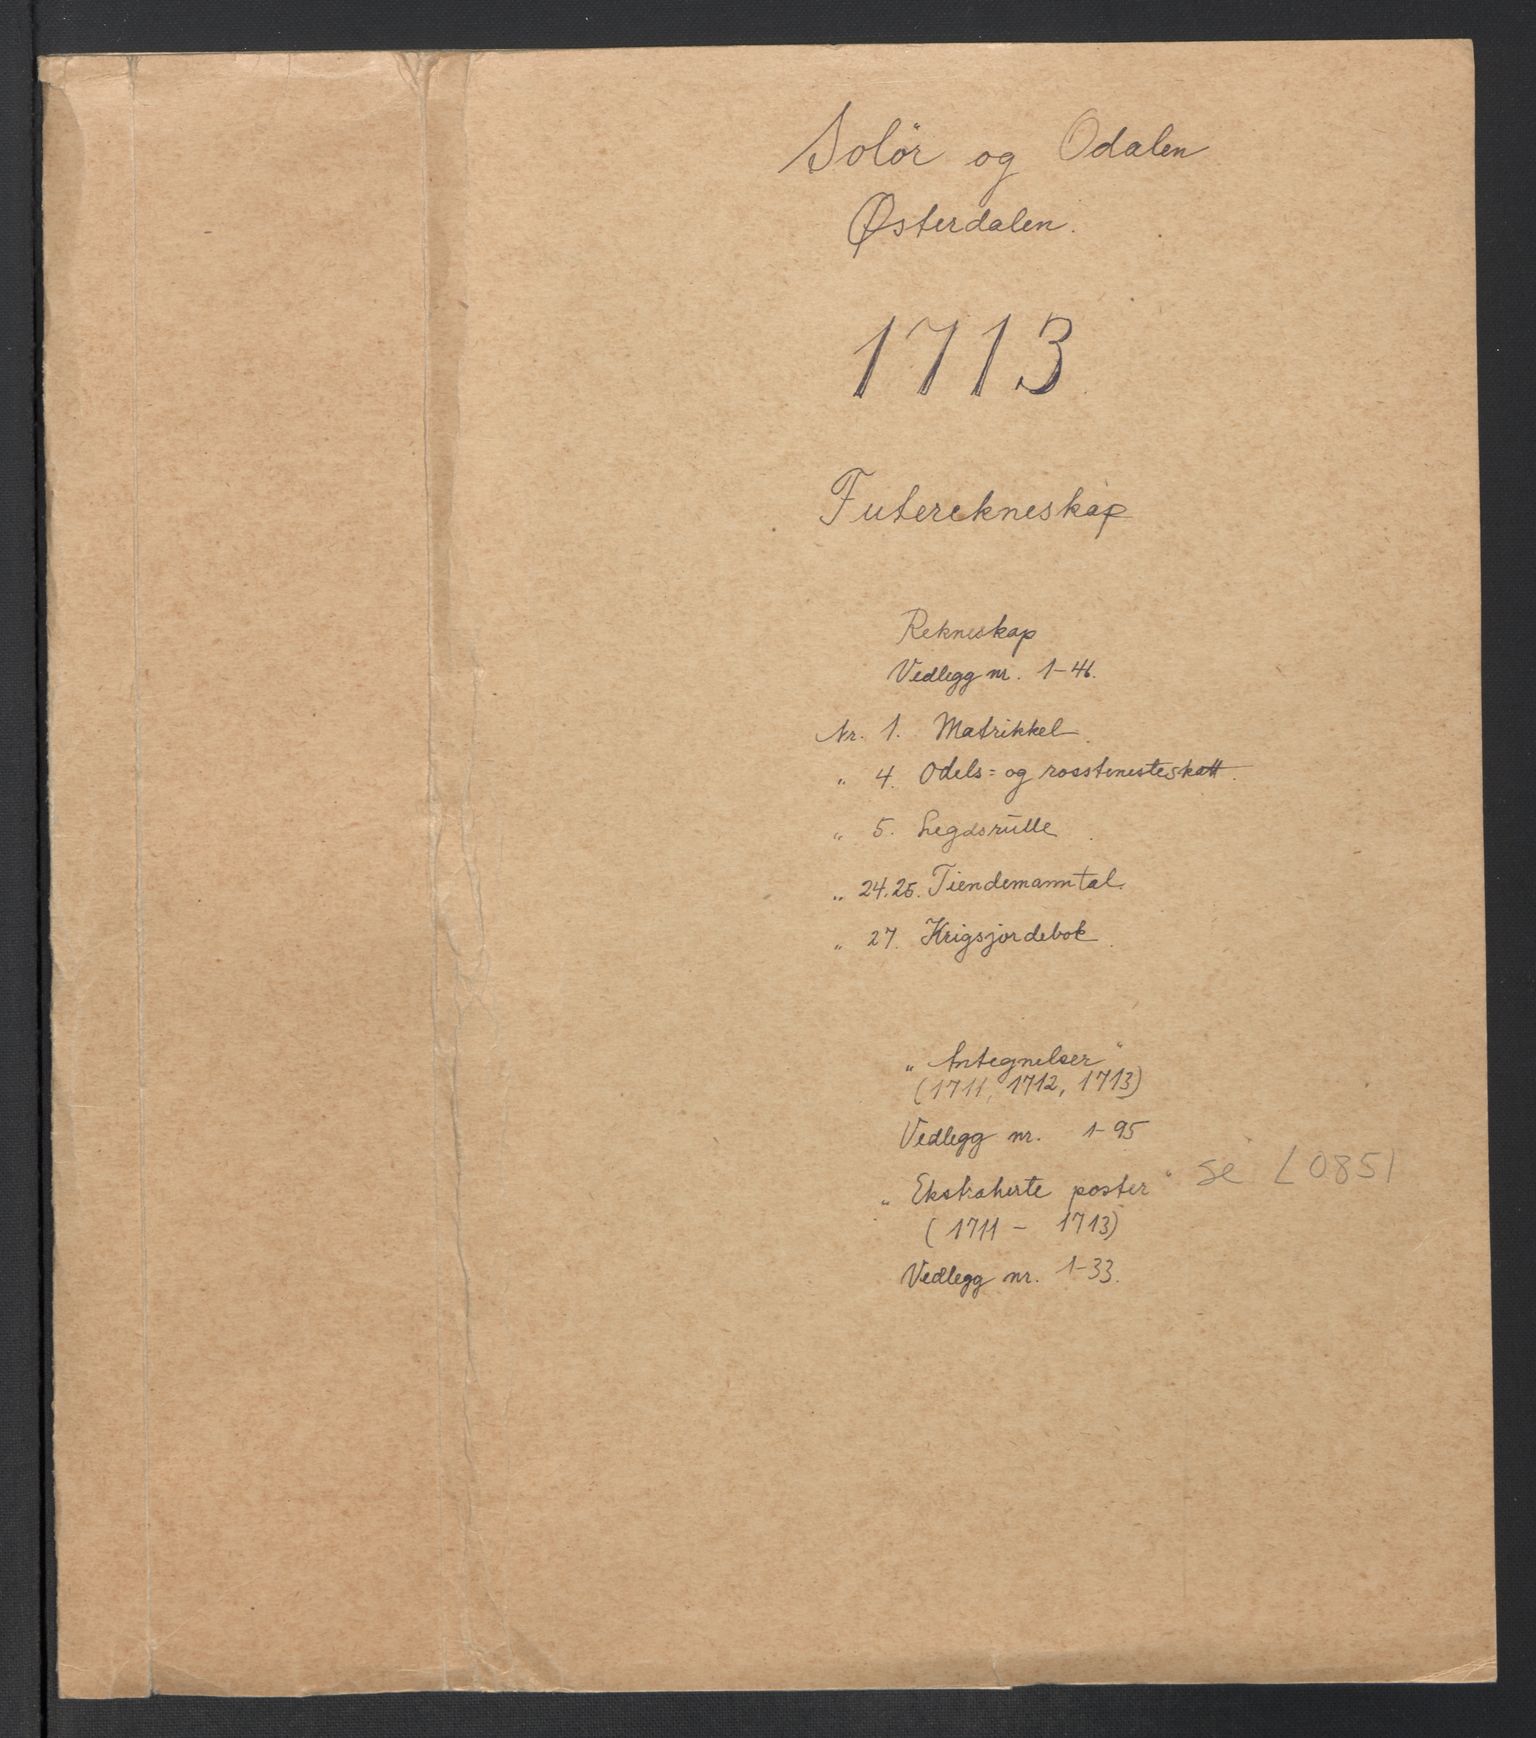 Solör og Odalen
Østerdalen.
1713
Futerekneskap
Rekneskap
Vedlegg nr. 1-46.
Nr. 1. Matrikkel
" 4. Odels= og rosstenesteskatt.
" 5. Legdsrulle
" 24, 25. Tiendemanntal
" 27. Krigsjordebok
"Antegnelser"
(1711, 1712, 1713)
Vedlegg nr. 1-95
"Ekstraherte poster" se L0851
(1711 - 1713)
Vedlegg nr. 1-33.